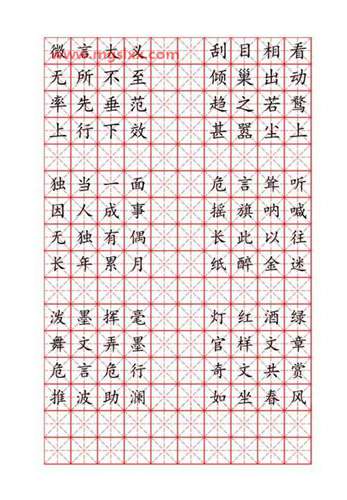 www.mgslxx.com
微言大义 刮目相看
无所不至 倾巢出动
率先垂范 趋之若鹜
上行下效 甚嚣尘上
独当一面 危言耸听
因人成事 摇旗呐喊
无独有偶 长此以往
长年累月 纸醉金迷
泼墨挥毫 灯红酒绿
舞文弄墨 官样文章
危言危行 奇文共赏
推波助澜 如坐春风